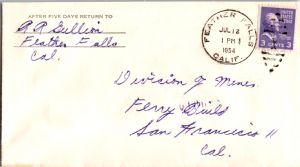 AFTER FIVE DAYS RETURN TO
A R Gullion
Feather Falls
Cal.
FEATHER FALLS
JUL 12
1 PM
1954
CALIF.
3 CENTS 3
Division of Mines
Ferry Build
San Francisco 11
Cal.